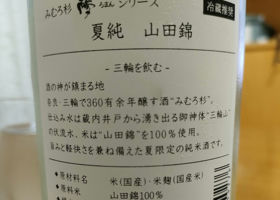 みむろ杉 シリーズ
冷蔵推奨
夏純 山田錦
- 三輪を飲む -
酒の神が鎮まる地
奈良・三輪で360有余年醸す酒"みむろ杉"。
仕込み水は蔵内井戸から湧き出る御神体"三輪山"
の伏流水、米は"山田錦"を100%使用。
旨みと軽快さを兼ね備えた夏限定の純米酒です。
◆原材料名 米(国産)・米麹(国産米)
◆原料米 山田錦100%